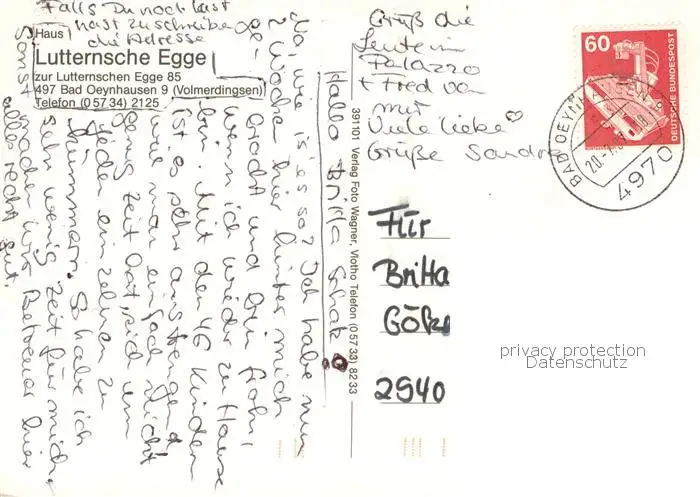 Falls Du noch lust
hast zu schreiben
die Adresse
Haus
Lutternsche Egge
zur Lutternschen Egge 85
497 Bad Oeynhausen 9 (Volmerdingsen)
Telefon (0 57 34) 2125
Hallo Britta Schatz
Na, wie is' es so? Ich habe nun
2 Wochen hier hinter mich
gebracht und bin froh,
wenn ich wieder zu Hause
bin. Mit den 46 Kindern
ist es sehr anstrengend
wie man einfach nicht
genug Zeit hat, sich um
jeden einzelnen zu
kümmern. So habe ich
sehr wenig Zeit für mich.
Sonst machen wir Betreuer hier
alles recht gut.
391101 Verlag Foto Wagner, Vlotho Telefon (0 57 33) 82 33
Gruß die
Leute im
Palazzo
+ Fred von
mir
Viele liebe
Grüße Sandra
Für
Britta
2940
60
DEUTSCHE BUNDESPOST
BAD OEYNHAUSEN
4970
privacy protection
Datenschutz